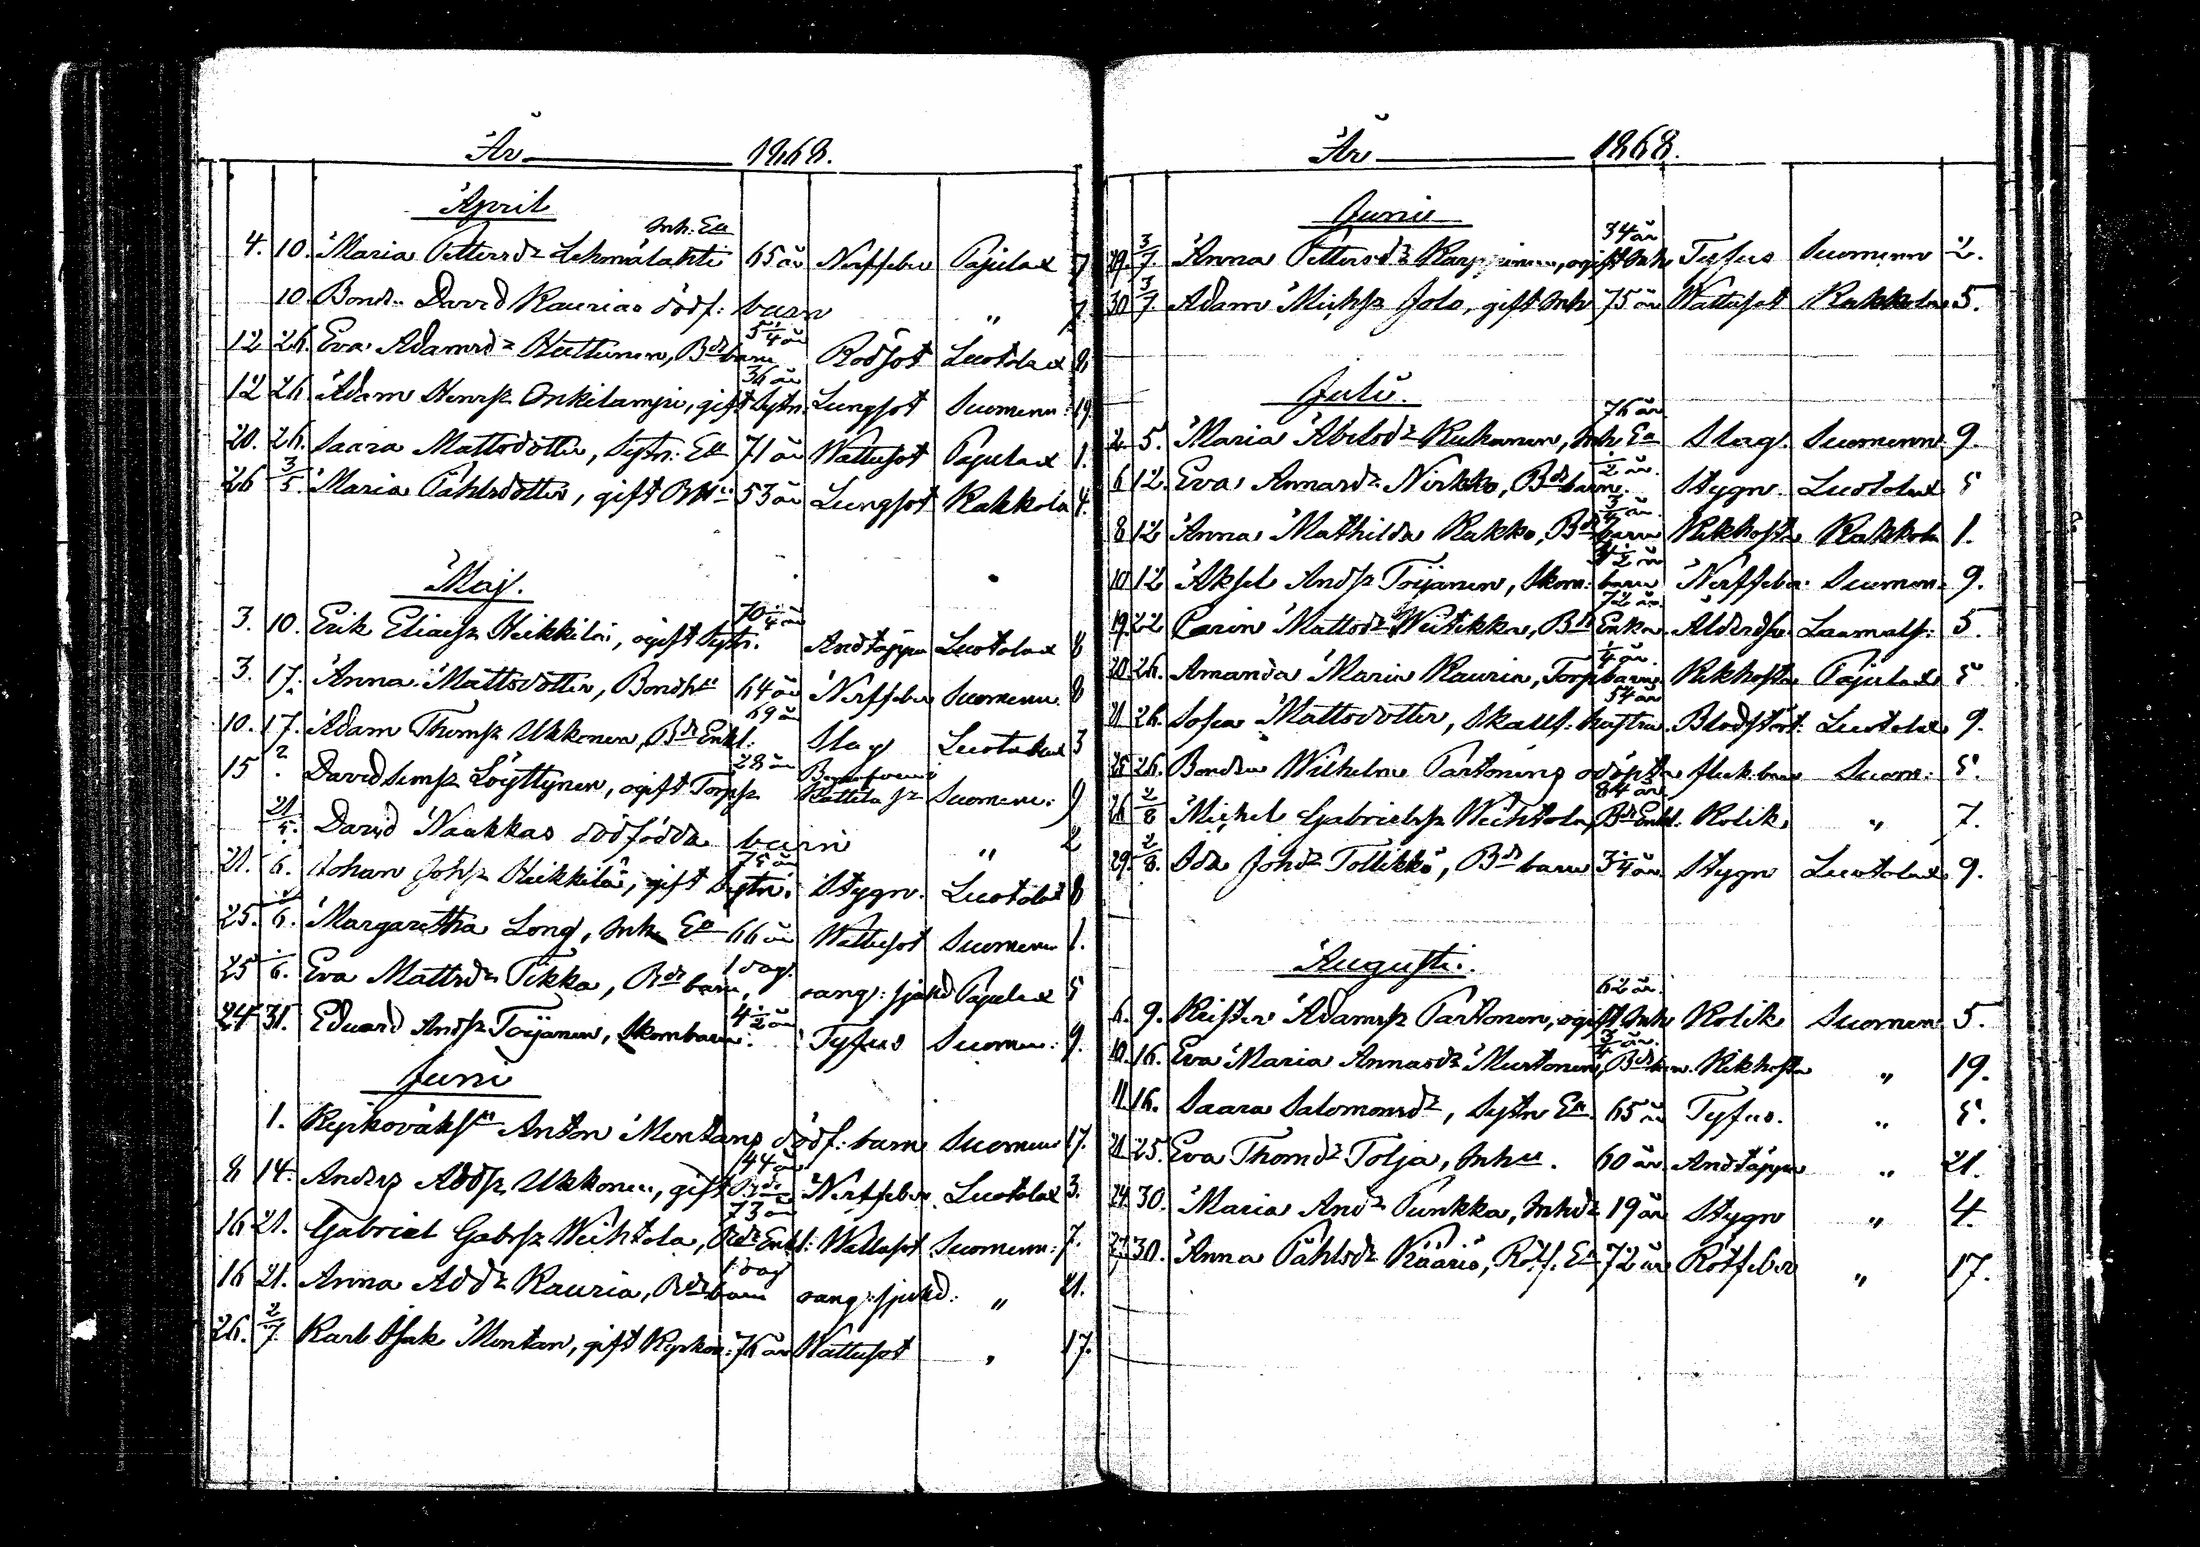 År 1868.
April
4. 10. Maria Pettersdr Lehmälahti Inh. Ea 65 år Nerffeber Pajulax 7
10. Bond. David Kaurias dödf: barn " 7.
12 26. Eva Adamsdr Huttunen, Bdr barn 5 1/4 år Rödsot Luotolax 8
12 26. Adam Henrsr Onkilampi, gift Sytn. 36 år Lungsot Suomenn: 19.
20. 26. Saara Mattsdotter, Sytn: Ea 71 år Wattusot Pajulax 1.
26 3/5. Maria Påhlsdotter, gift 53 år Lungsot Kakkola 4.
Maj.
3. 10. Erik Eliassr Heikkilä, ogift Sytn. 70 1/4 år Andtäppa Luotolax 8
3. 17. Anna Mattsdotter, Bondhu 64 år Nerffeber Suomenn. 8
10. 17. Adam Thomsr Ukkonen, Bdr Enkl: 69 år Slag Luotolax 3
15 ? David Simsr Löyttynen, ogift Torpsr 28 år Suomenn: 9
21/5. David Naakkas dödfödda barn " 2
21. 6. Johan Johsr Heikkilä, gift Sytn: 75 år Stygn. Luotolax 8
25. 6. Margaretha Long, Inh Ea 66 år Wattusot Suomenn 1.
25 6. Eva Mattsdr Tikka, Bdr barn, 1 dag. okänd Pajulax 5
24 31. Eduard Andsr Toijanen, Skom barn. 4 1/2 år Tyfus Suomen: 9.
Juni
1. Kyrkoväktn Anton Montans dödf: barn Suomenn 17.
8 14. Anders Addsr Ukkonen, gift 44 år Nerffeber. Luotolax 3.
16 21. Gabriel Gabrsr Weihtola, Bdr Enkl: 73 år Wattusot Suomenn: 7.
16 21. Anna Addr Kauria, Bdr barn 1 dag okänd: " 21.
26. 2/7 Karl Isak Montan, gift Kyrkov: 76 år Wattusot " 17.
År 1868.
Junii
29. 3/7. Anna Pettersdr Karppinen, ogift Inh 34 år Tyfus Suomenn 2.
30 3/7. Adam Michsr Jolo, gift Inh 75 år Wattusot Kakkola 5.
Juli.
2 5. Maria Abelsdr Kukonen, Inh Ea 76 år Slag. Suomenn 9.
6 12. Eva Annasdr Nirkko, Bdr barn. 1/2 år. Stygn. Luotolax 5
8 12 Anna Mathilda Kakko, Bdr barn 3/4 år. Kikhosta Kakkola 1.
10 12 Aksel Andsr Toijanen, Skom: barn 1/2 år Nerffeber: Suomen. 9.
19. 22 Carin Mattsdr Weitikka, Bdr Enka 72 år. Ålderdr. Laamals: 5.
20. 26. Amanda Maria Kauria, Torp barn 1/4 år. Kikhosta Pajulax 5
21 26. Sofia Mattsdotter, Skallf. hustru 54 år Blodstört. Luotolax 9.
25 26. Bonden Wilhelm Partonins odöpta flick barn Suom: 5.
26 2/8 Michel Gabrielssr Weihtola, Bdr Enkl. 84 år Kolik " 7.
29. 2/8. Ida Johdr Tollikko, Bdr barn 3 1/4 år Stygn Luotolax 9.
Augusti.
6. 9. Kristian Adamsr Partonen, ogift Inh 62 år. Kolik Suomen 5.
10. 16. Eva Maria Annasdr Murtonen, Bdr barn. 3/4 år. Kikhosta " 19.
11. 16. Saara Salomonsdr, Sytn Ea. 65 år Tyfus. " 5.
21 25. Eva Thomdr Tolja, Inhu. 60 år. Andtäppa " 21.
24. 30. Maria Anddr Punkka, Inhdr 19 år Stygn " 4.
27. 30. Anna Påhlsdr Kääriö, Rotf. Ea 72 år Rötfeber " 17.